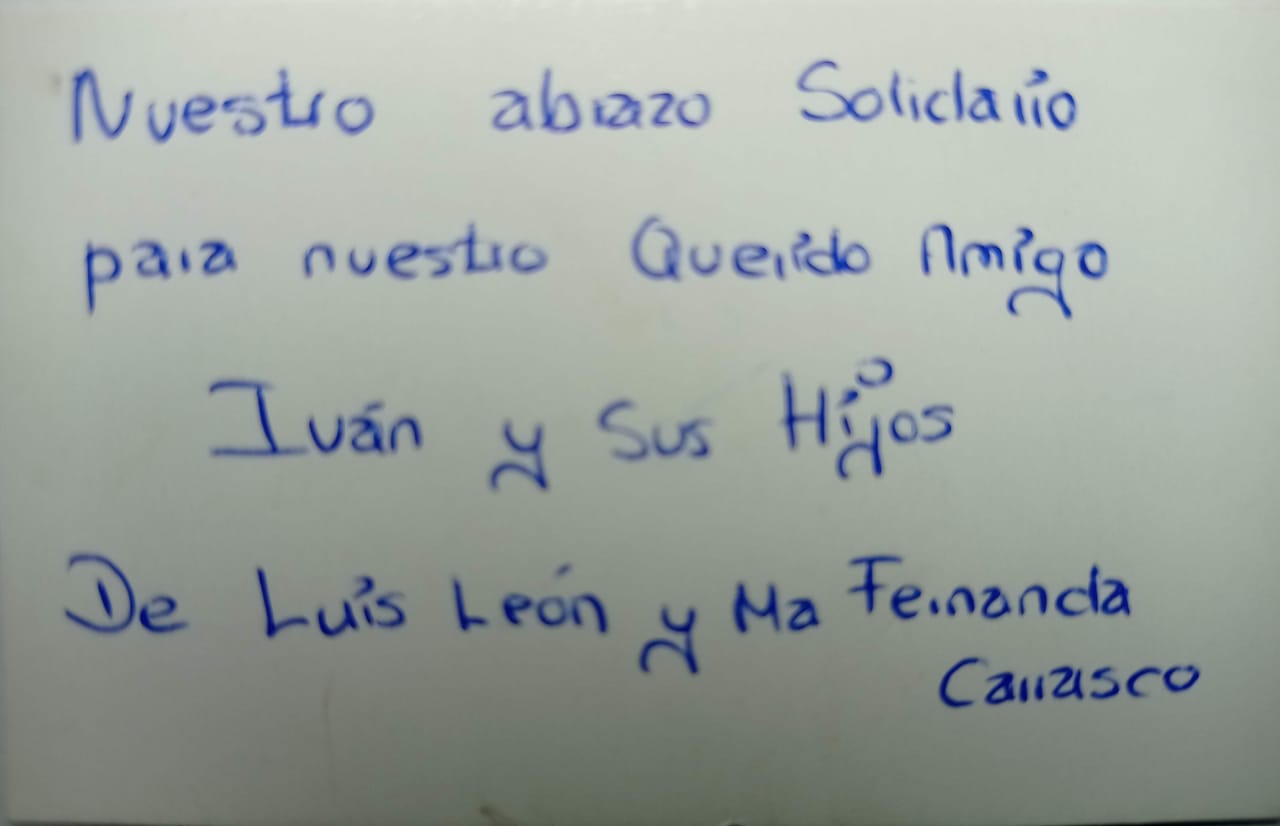 Nuestro abrazo Solidario
para nuestro Querido Amigo
Iván y Sus Hijos
De Luis León y Ma Fernanda
Carrasco